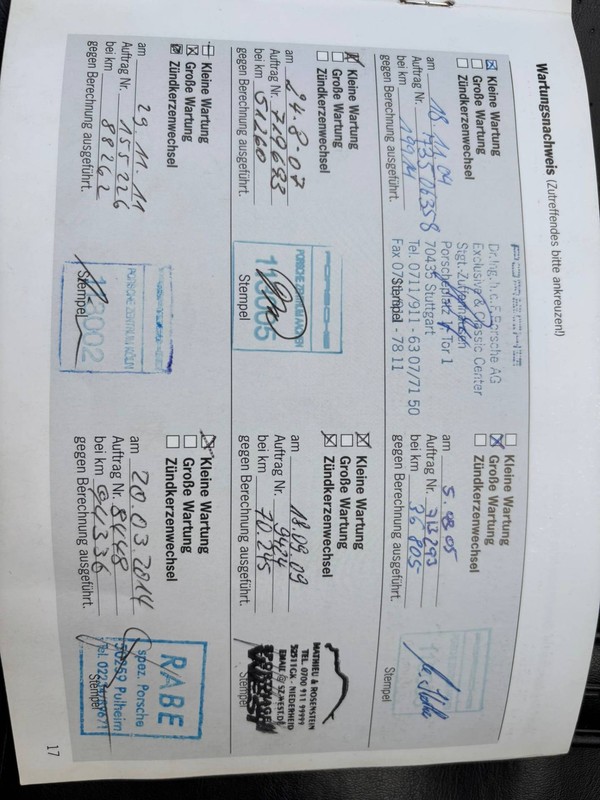 Wartungsnachweis (Zutreffendes bitte ankreuzen!)
Kleine Wartung
Große Wartung
Zündkerzenwechsel
am 18.11.04
Auftrag Nr.
bei km
gegen Berechnung ausgeführt.
Dr. Ing. h.c. F. Porsche AG
Exclusive & Classic Center
Porscheplatz Tor 1
70435 Stuttgart
Tel. 0711/911 - 63 07/71 50
Fax 07 - 78 11
Stempel
Kleine Wartung
Große Wartung
Zündkerzenwechsel
am
Auftrag Nr. 713293
bei km 36 805-
gegen Berechnung ausgeführt.
Stempel
Kleine Wartung
Große Wartung
Zündkerzenwechsel
am 24.8.07
Auftrag Nr. 719693
bei km 51260
gegen Berechnung ausgeführt.
PORSCHE
PORSCHE ZENTRUM AACHEN
Stempel
Kleine Wartung
Große Wartung
Zündkerzenwechsel
am 18.09.09
Auftrag Nr. 9424
bei km 70.245
gegen Berechnung ausgeführt.
MATHIEU & ROSENSTEIN
TEL. 0700 911 99999
52511 GK - NIEDERHEID
Stempel
Kleine Wartung
Große Wartung
Zündkerzenwechsel
am 29.11.11
Auftrag Nr. 155226
bei km 88262
gegen Berechnung ausgeführt.
PORSCHE ZENTRUM KÖLN
Stempel
Kleine Wartung
Große Wartung
Zündkerzenwechsel
am 20.03.2014
Auftrag Nr. 8448
bei km 94336
gegen Berechnung ausgeführt.
RABE
spez. Porsche
50259 Pulheim
Stempel
17